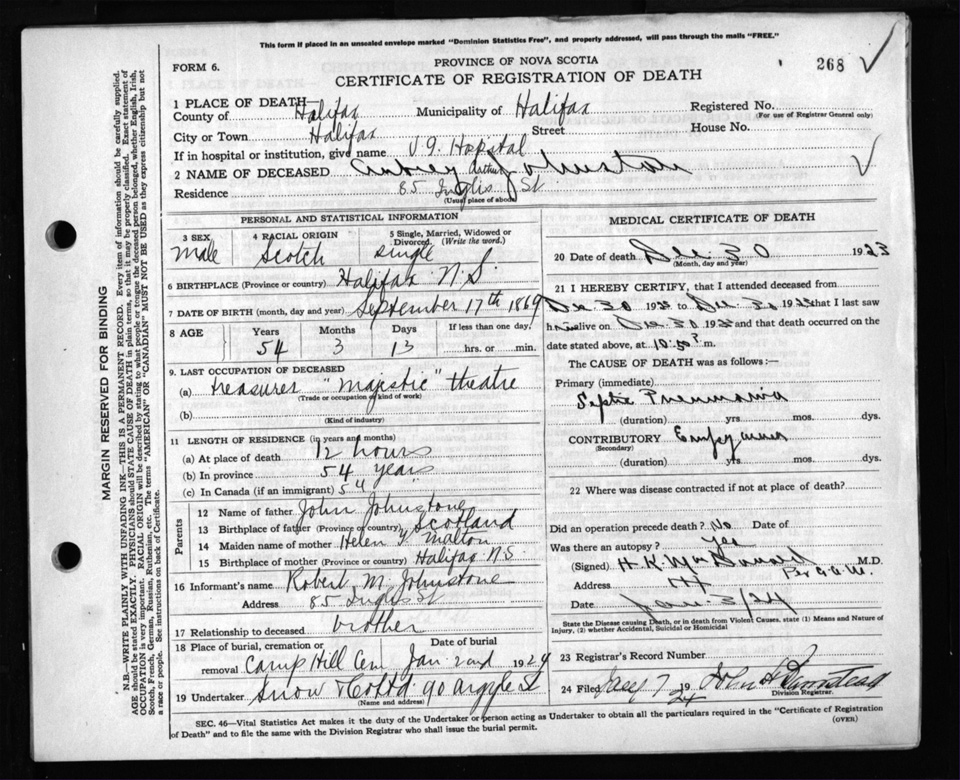 This form if placed in an unsealed envelope marked "Dominion Statistics Free", and properly addressed, will pass through the mails "FREE."
FORM 6.
PROVINCE OF NOVA SCOTIA
268
CERTIFICATE OF REGISTRATION OF DEATH
1 PLACE OF DEATH—
County of Halifax Municipality of Halifax Registered No.
(For use of Registrar General only)
City or Town Halifax Street House No.
If in hospital or institution, give name V.G. Hospital
2 NAME OF DECEASED Aubrey Arthur Johnston
Residence 85 Inglis St
(Usual place of abode)
PERSONAL AND STATISTICAL INFORMATION
3 SEX 4 RACIAL ORIGIN 5 Single, Married, Widowed or Divorced. (Write the word.)
Male Scotch single
6 BIRTHPLACE (Province or country) Halifax N.S.
7 DATE OF BIRTH (month, day and year) September 17th 1869
8 AGE Years Months Days If less than one day,
54 3 13 hrs. or min.
9. LAST OCCUPATION OF DECEASED
(a) treasurer "Majestic" theatre
(Trade or occupation of kind of work)
(b)
(Kind of industry)
11 LENGTH OF RESIDENCE (in years and months)
(a) At place of death 12 hours
(b) In province 54 years
(c) In Canada (if an immigrant) 54
Parents
12 Name of father John Johnstone
13 Birthplace of father (Province or country) Scotland
14 Maiden name of mother Helen Y. Malton
15 Birthplace of mother (Province or country) Halifax N.S.
16 Informant's name Robert M. Johnstone
Address 85 Inglis St
17 Relationship to deceased brother
18 Place of burial, cremation or removal Camp Hill Cem Date of burial Jan 2nd 1924
19 Undertaker Snow & Co Ltd. 90 Argyle St
(Name and address)
MEDICAL CERTIFICATE OF DEATH
20 Date of death Dec 30 1923
(Month, day and year)
21 I HEREBY CERTIFY, that I attended deceased from
Dec 30 1923 to Dec. 30 1923 that I last saw
him alive on Dec 30 1923 and that death occurred on the
date stated above, at 10.50 P.m.
The CAUSE OF DEATH was as follows:—
Primary (immediate)
Septic Pneumonia
(duration) yrs mos. dys.
CONTRIBUTORY Empyema
(Secondary)
(duration) yrs mos. dys.
22 Where was disease contracted if not at place of death?
Did an operation precede death? No Date of
Was there an autopsy? yes
(Signed) H.K. MacDonald M.D.
Address Hx
Date Jan. 3/24
State the Disease causing Death, or in death from Violent Causes, state (1) Means and Nature of
Injury, (2) whether Accidental, Suicidal or Homicidal
23 Registrar's Record Number
24 Filed Jany 7 1924
Division Registrar.
SEC. 46—Vital Statistics Act makes it the duty of the Undertaker or person acting as Undertaker to obtain all the particulars required in the "Certificate of Registration
of Death" and to file the same with the Division Registrar who shall issue the burial permit. (OVER)
MARGIN RESERVED FOR BINDING
N.B.—WRITE PLAINLY WITH UNFADING INK—THIS IS A PERMANENT RECORD. Every item of information should be carefully supplied.
AGE should be stated EXACTLY. PHYSICIANS should STATE CAUSE OF DEATH in plain terms, so that it may be properly classified. Exact statement of
OCCUPATION is very important. RACIAL ORIGIN will be described by stating to what people or tongue the deceased person belonged, whether English, Irish,
Scotch, French, German, Russian, Ruthenian, etc. The terms "AMERICAN" OR "CANADIAN" MUST NOT BE USED as they express citizenship but not
a race or people. See instructions on back of Certificate.